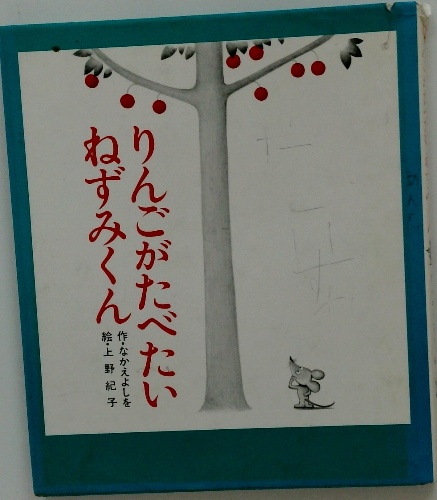 りんごがたべたい
ねずみくん
作・なかえよしを
絵・上野紀子